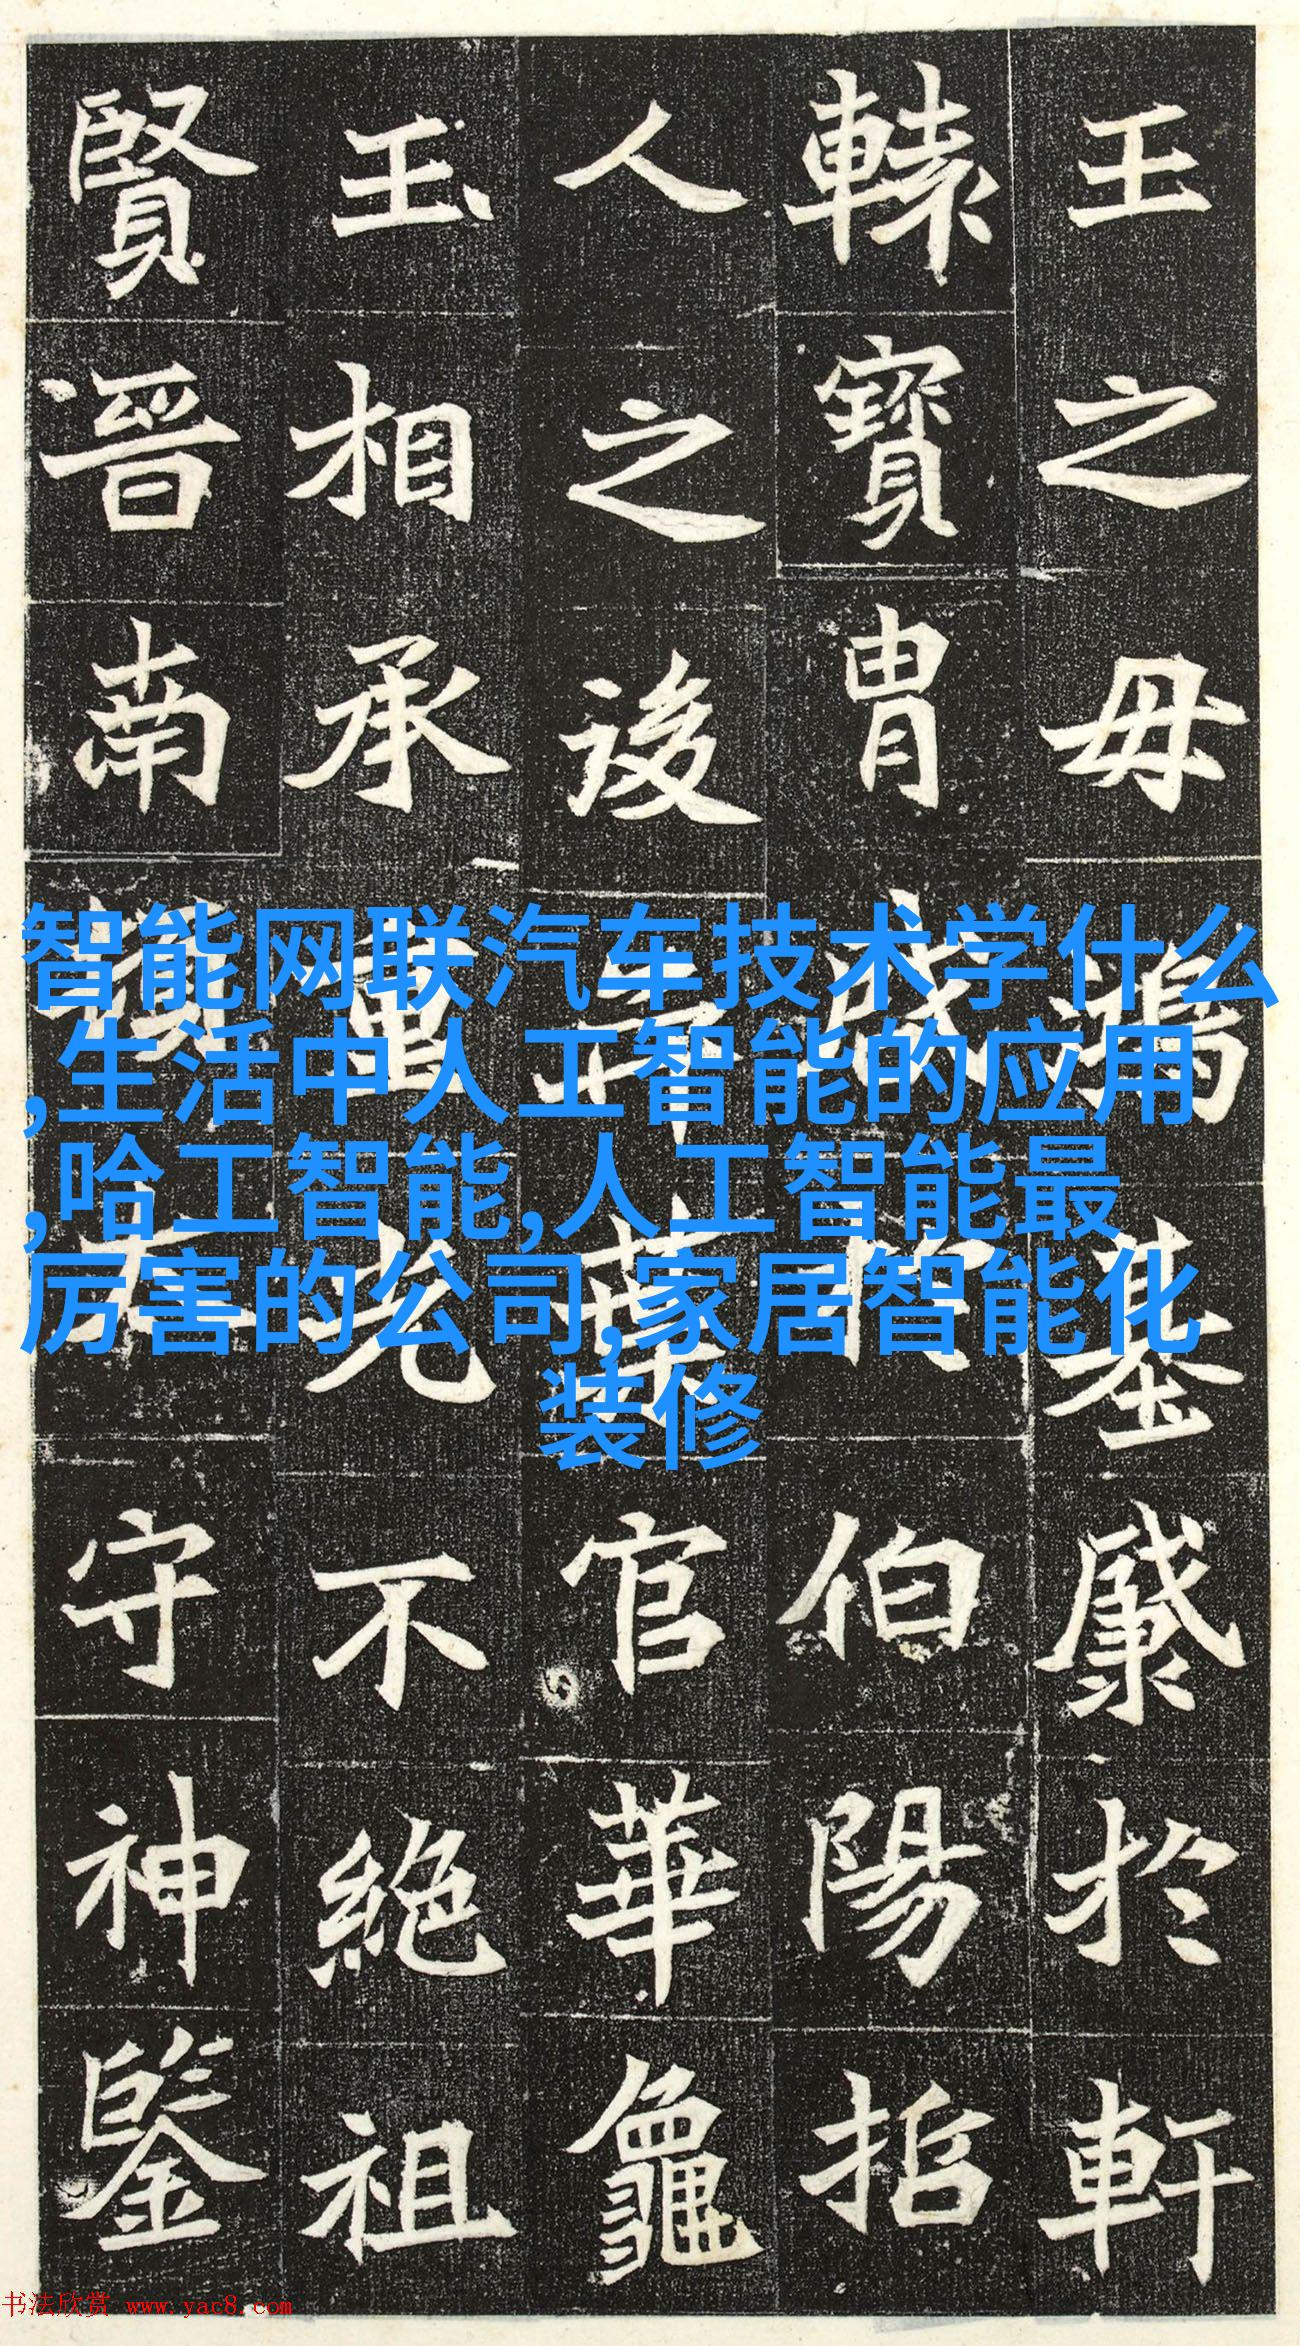 王之毋鴻基於軒
轅寶胄於伯陽指
人之後葉官華龜
玉相承重光不絕祖
賢晉南守神鑒
智能网联汽车技术学什么
,生活中人工智能的应用
,哈工智能,人工智能最
厉害的公司,家居智能化
装修
书法欣赏 www.yac8.com